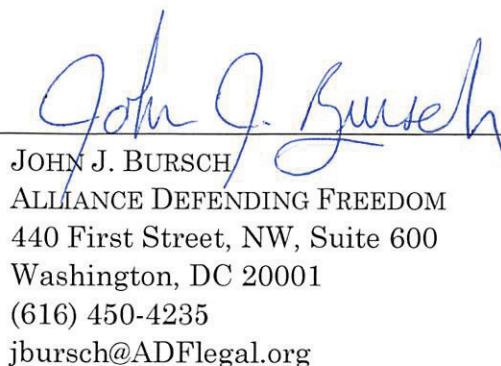 John J. Bursch
JOHN J. BURSCH
ALLIANCE DEFENDING FREEDOM
440 First Street, NW, Suite 600
Washington, DC 20001
(616) 450-4235
jbursch@ADFlegal.org